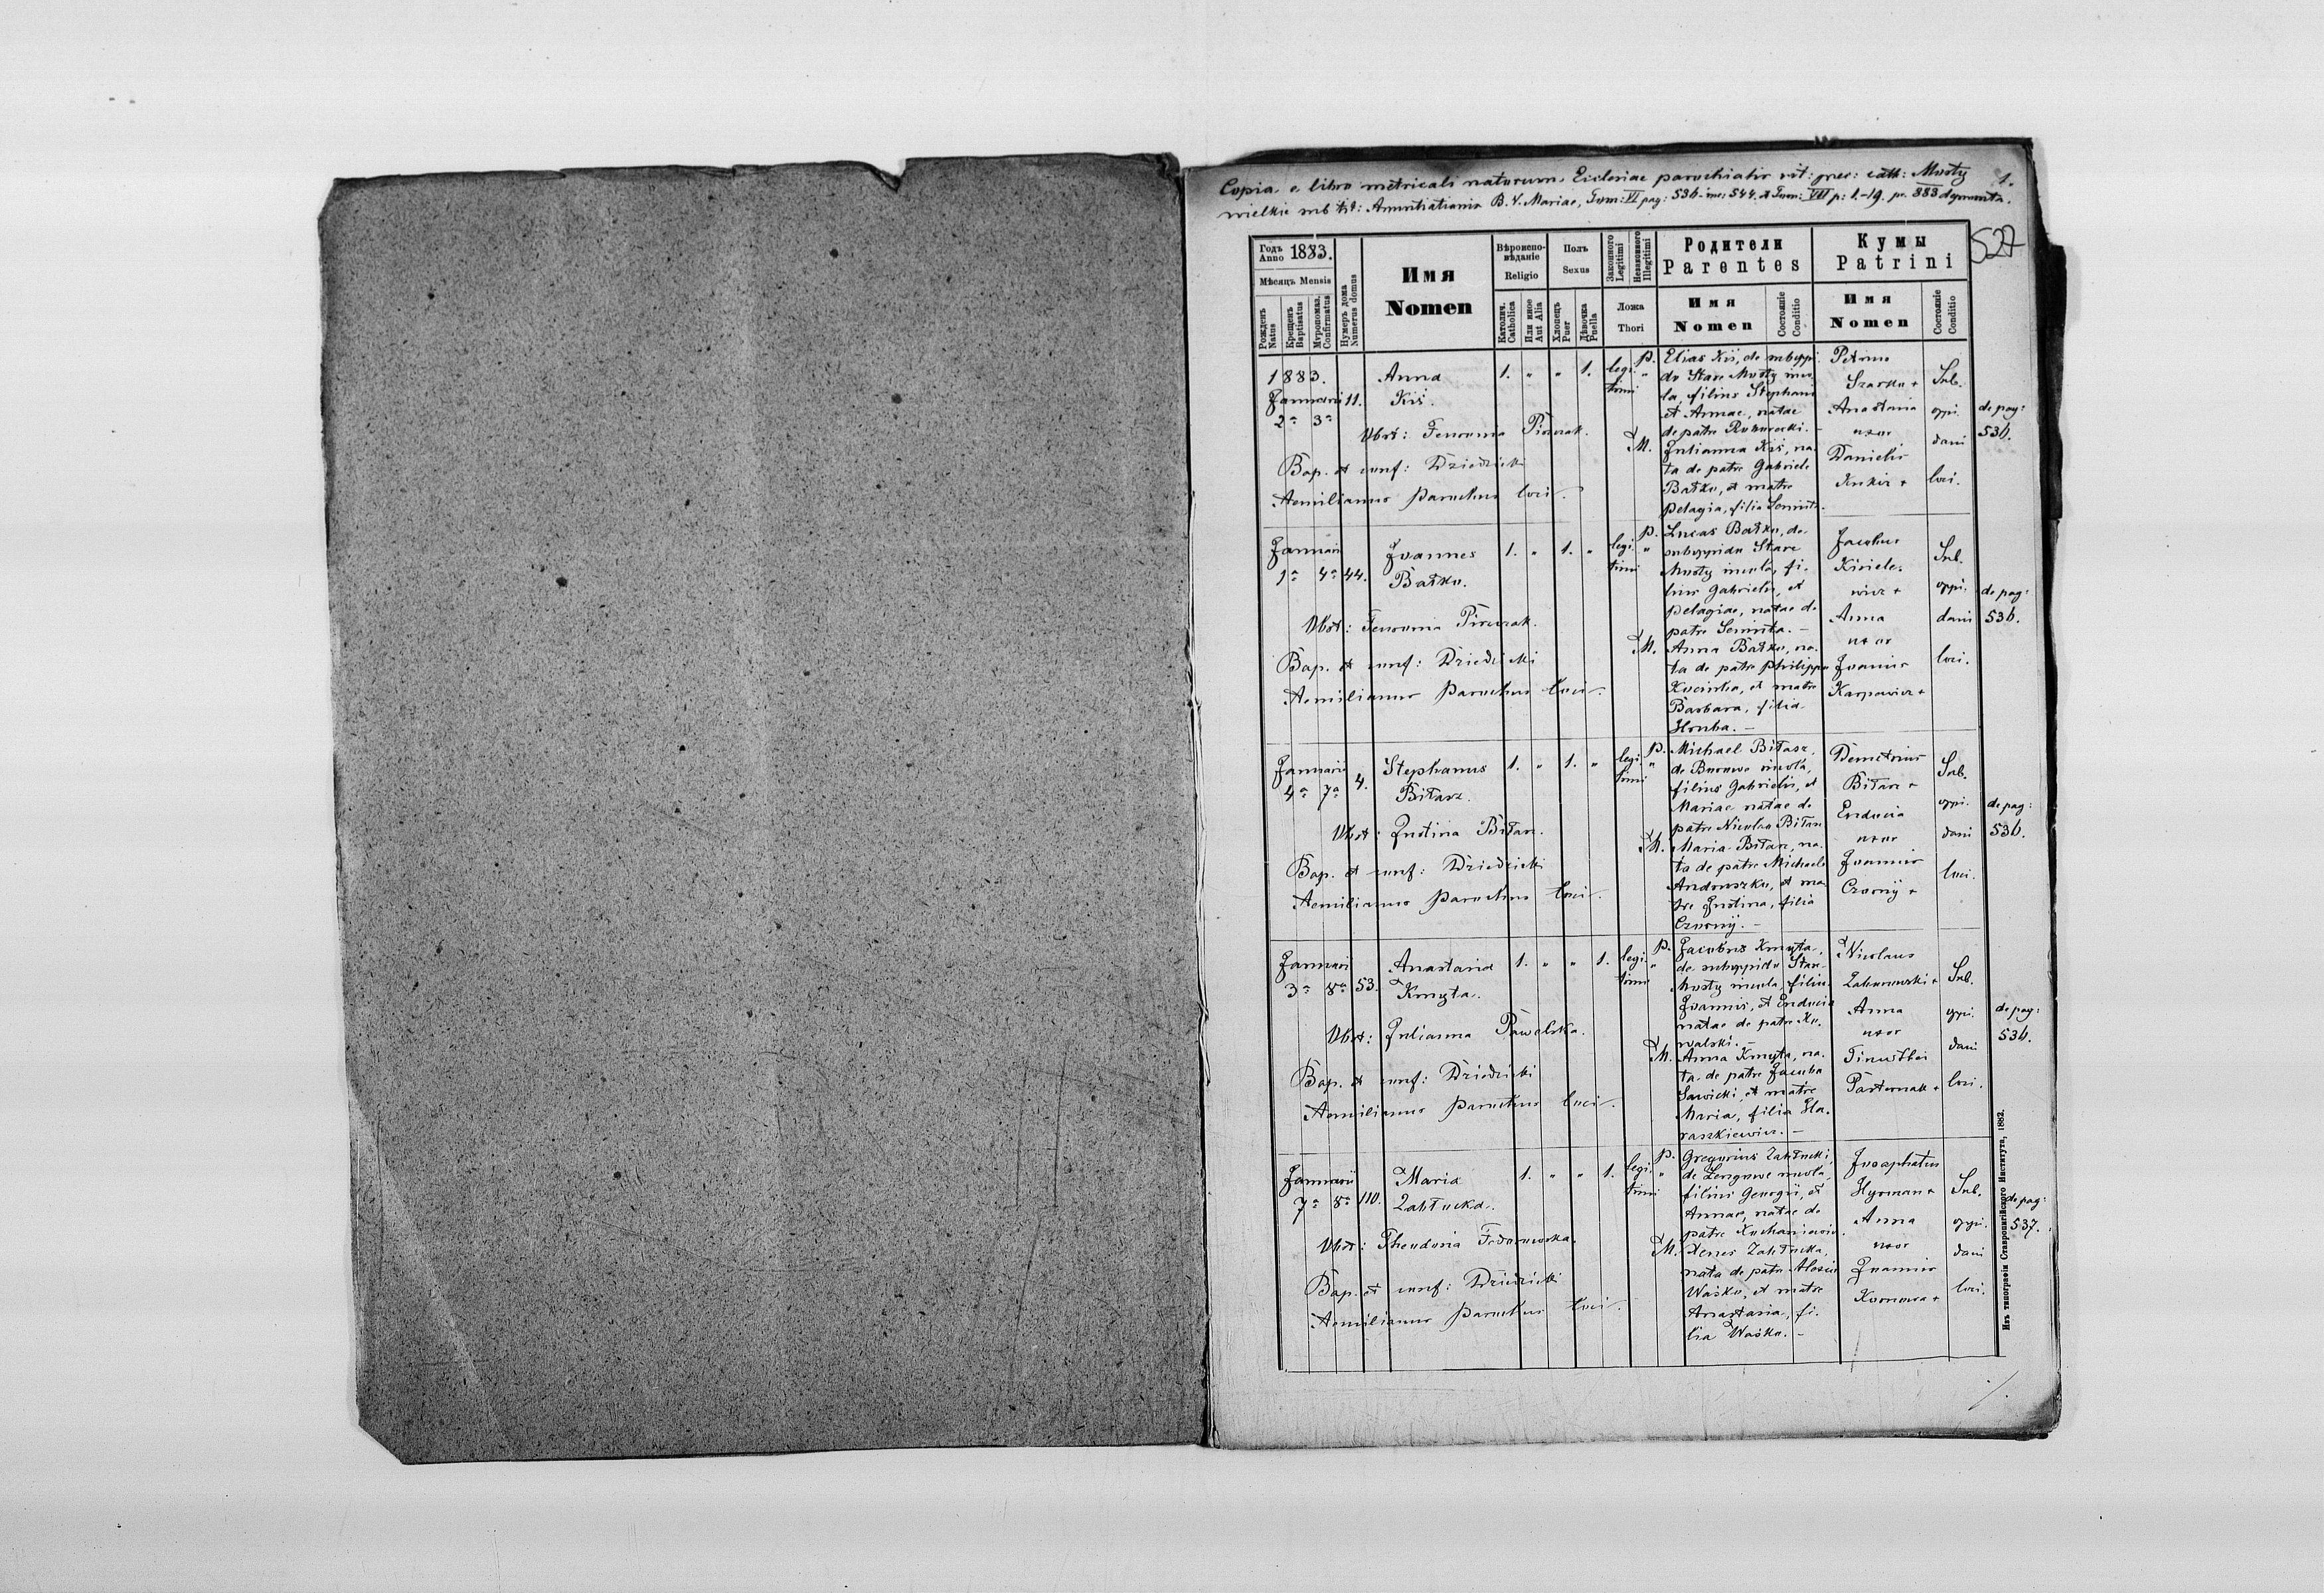 Copia e libro metricali natorum, Ecclesiae parochialis rit: grec: cath: Mosty 1.
wielkie sub tit: Annuntiationis B. V. Mariae, Tom: VI pag: 536. inc: 544. et Tom: VII p: 1.-19. pr. 883
527
Годъ Anno 1883.
Мѣсяцъ Mensis
Рожденъ Natus
Крещенъ Baptisatus
Мѵропомаз. Confirmatus
Нумеръ дома Numerus domus
Имя
Nomen
Вѣроиспо-
вѣданіе
Religio
Католич. Catholica
Или иное Aut Alia
Полъ
Sexus
Хлопецъ Puer
Дѣвочка Puella
Законного Legitimi
Незаконного Illegitimi
Ложа
Thori
Родители
Parentes
Имя
Nomen
Состояніе Conditio
Кумы
Patrini
Имя
Nomen
Состояніе Conditio
1883.
Januarii 11.
2a 3a
Anna
Kiś.
1. " " 1.
legi
timi
Obst: Fenronia Pirczak.
Bap. et conf: Dziedzicki
Aemilianus parochus loci.
P. Elias Kiś, de suboppi
do Stare Mosty inco
la, filius Stephani
et Annae, natae
de patre
M. Julianna Kiś, na
ta de patre Gabriele
Bałko, et matre
Pelagia, filia
Petrus
Szarko +
Anastasia
uxor
Danielis
Kukiz +
Sub.
oppi.
dani
loci.
de pag:
536.
Januarii
1a 4a 44.
Joannes
Bałko.
1. " 1. "
legi
timi
Obst: Fenronia Pirczak.
Bap. et conf: Dziedzicki
Aemilianus parochus loci.
P. Lucas Bałko, de
suboppido Stare
Mosty incola, fi-
lius Gabrielis, et
Pelagiae, natae de
patre
M. Anna Bałko, na.
ta de patre Philippo
et matre
Barbara, filia
Hruba. –
Jacobus
Kisiele.
wicz +
Anna
uxor
Joannis
Karpowicz +
Sub.
oppi.
dani
loci.
de pag:
536.
Januarii
4a 7a 4.
Stephanus
Biłasz.
1. " 1. "
legi
timi
Obst: Justina Biłasz.
Bap. et conf: Dziedzicki
Aemilianus parochus loci.
P. Michael Biłasz,
de Borowe incola,
filius Gabrielis, et
Mariae natae de
patre Nicolao Biłasz
M. Maria Biłasz, na.
ta de patre Michaele
Andruszko, et ma
tre Justina, filia
Czornij. –
Demetrius
Biłasz +
Eudocia
uxor
Joannis
Czornij +
Sub.
oppi.
dani
loci.
de pag:
536.
Januarii
3a 8a 53.
Anastasia
Kmyta.
1. " " 1.
legi
timi
Obst: Julianna Pawelska.
Bap. et conf: Dziedzicki
Aemilianus parochus loci.
P. Jacobus Kmyta,
de suboppido Stare
Mosty incola, filius
Joannis, et Eudocia
natae de patre Ko.
walski. –
M. Anna Kmyta, na.
ta de patre Jacobo
Sawicki, et matre
Maria, filia Ha.
raszkiewicz. –
Nicolaus
Anna
uxor
Timothei
Pasternak +
Sub.
oppi.
dani
loci.
de pag:
536.
Januarii
7a 8a 110.
Maria
Zabłocka.
1. " " 1.
legi
timi
Obst: Theodosia Fedorowska.
Bap. et conf: Dziedzicki
Aemilianus parochus loci.
P. Gregorius Zabłocki,
de incola,
filius Georgii, et
Annae, natae de
patre
M. Xenes Zabłocka,
nata de patre Alexio
Waśko, et matre
Anastasia, fi.
lia Waśko. –
Josaphatus
Hyrman +
Anna
uxor
Joannis
Sub.
oppi.
dani
loci.
de pag:
537.
Изъ типографіи Ставропигійского Института, 1882.